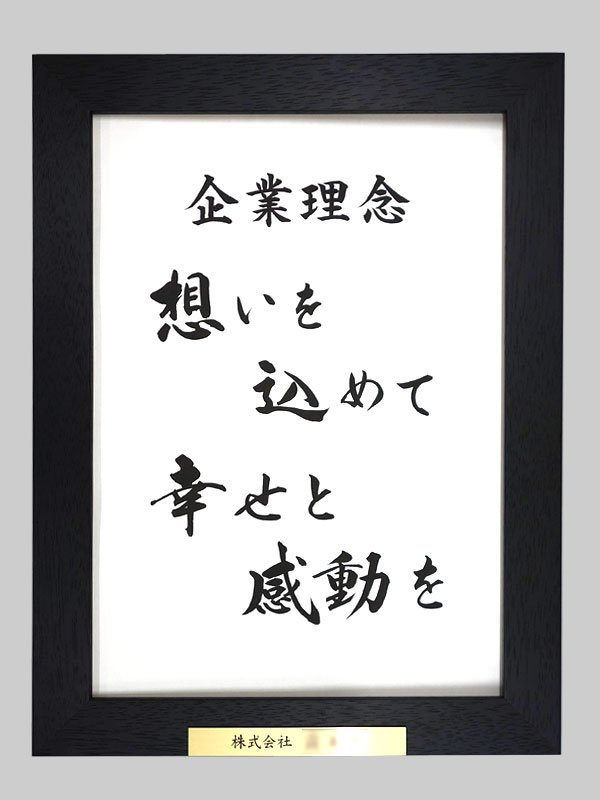 企業理念
想いを
込めて
幸せと
感動を
株式会社